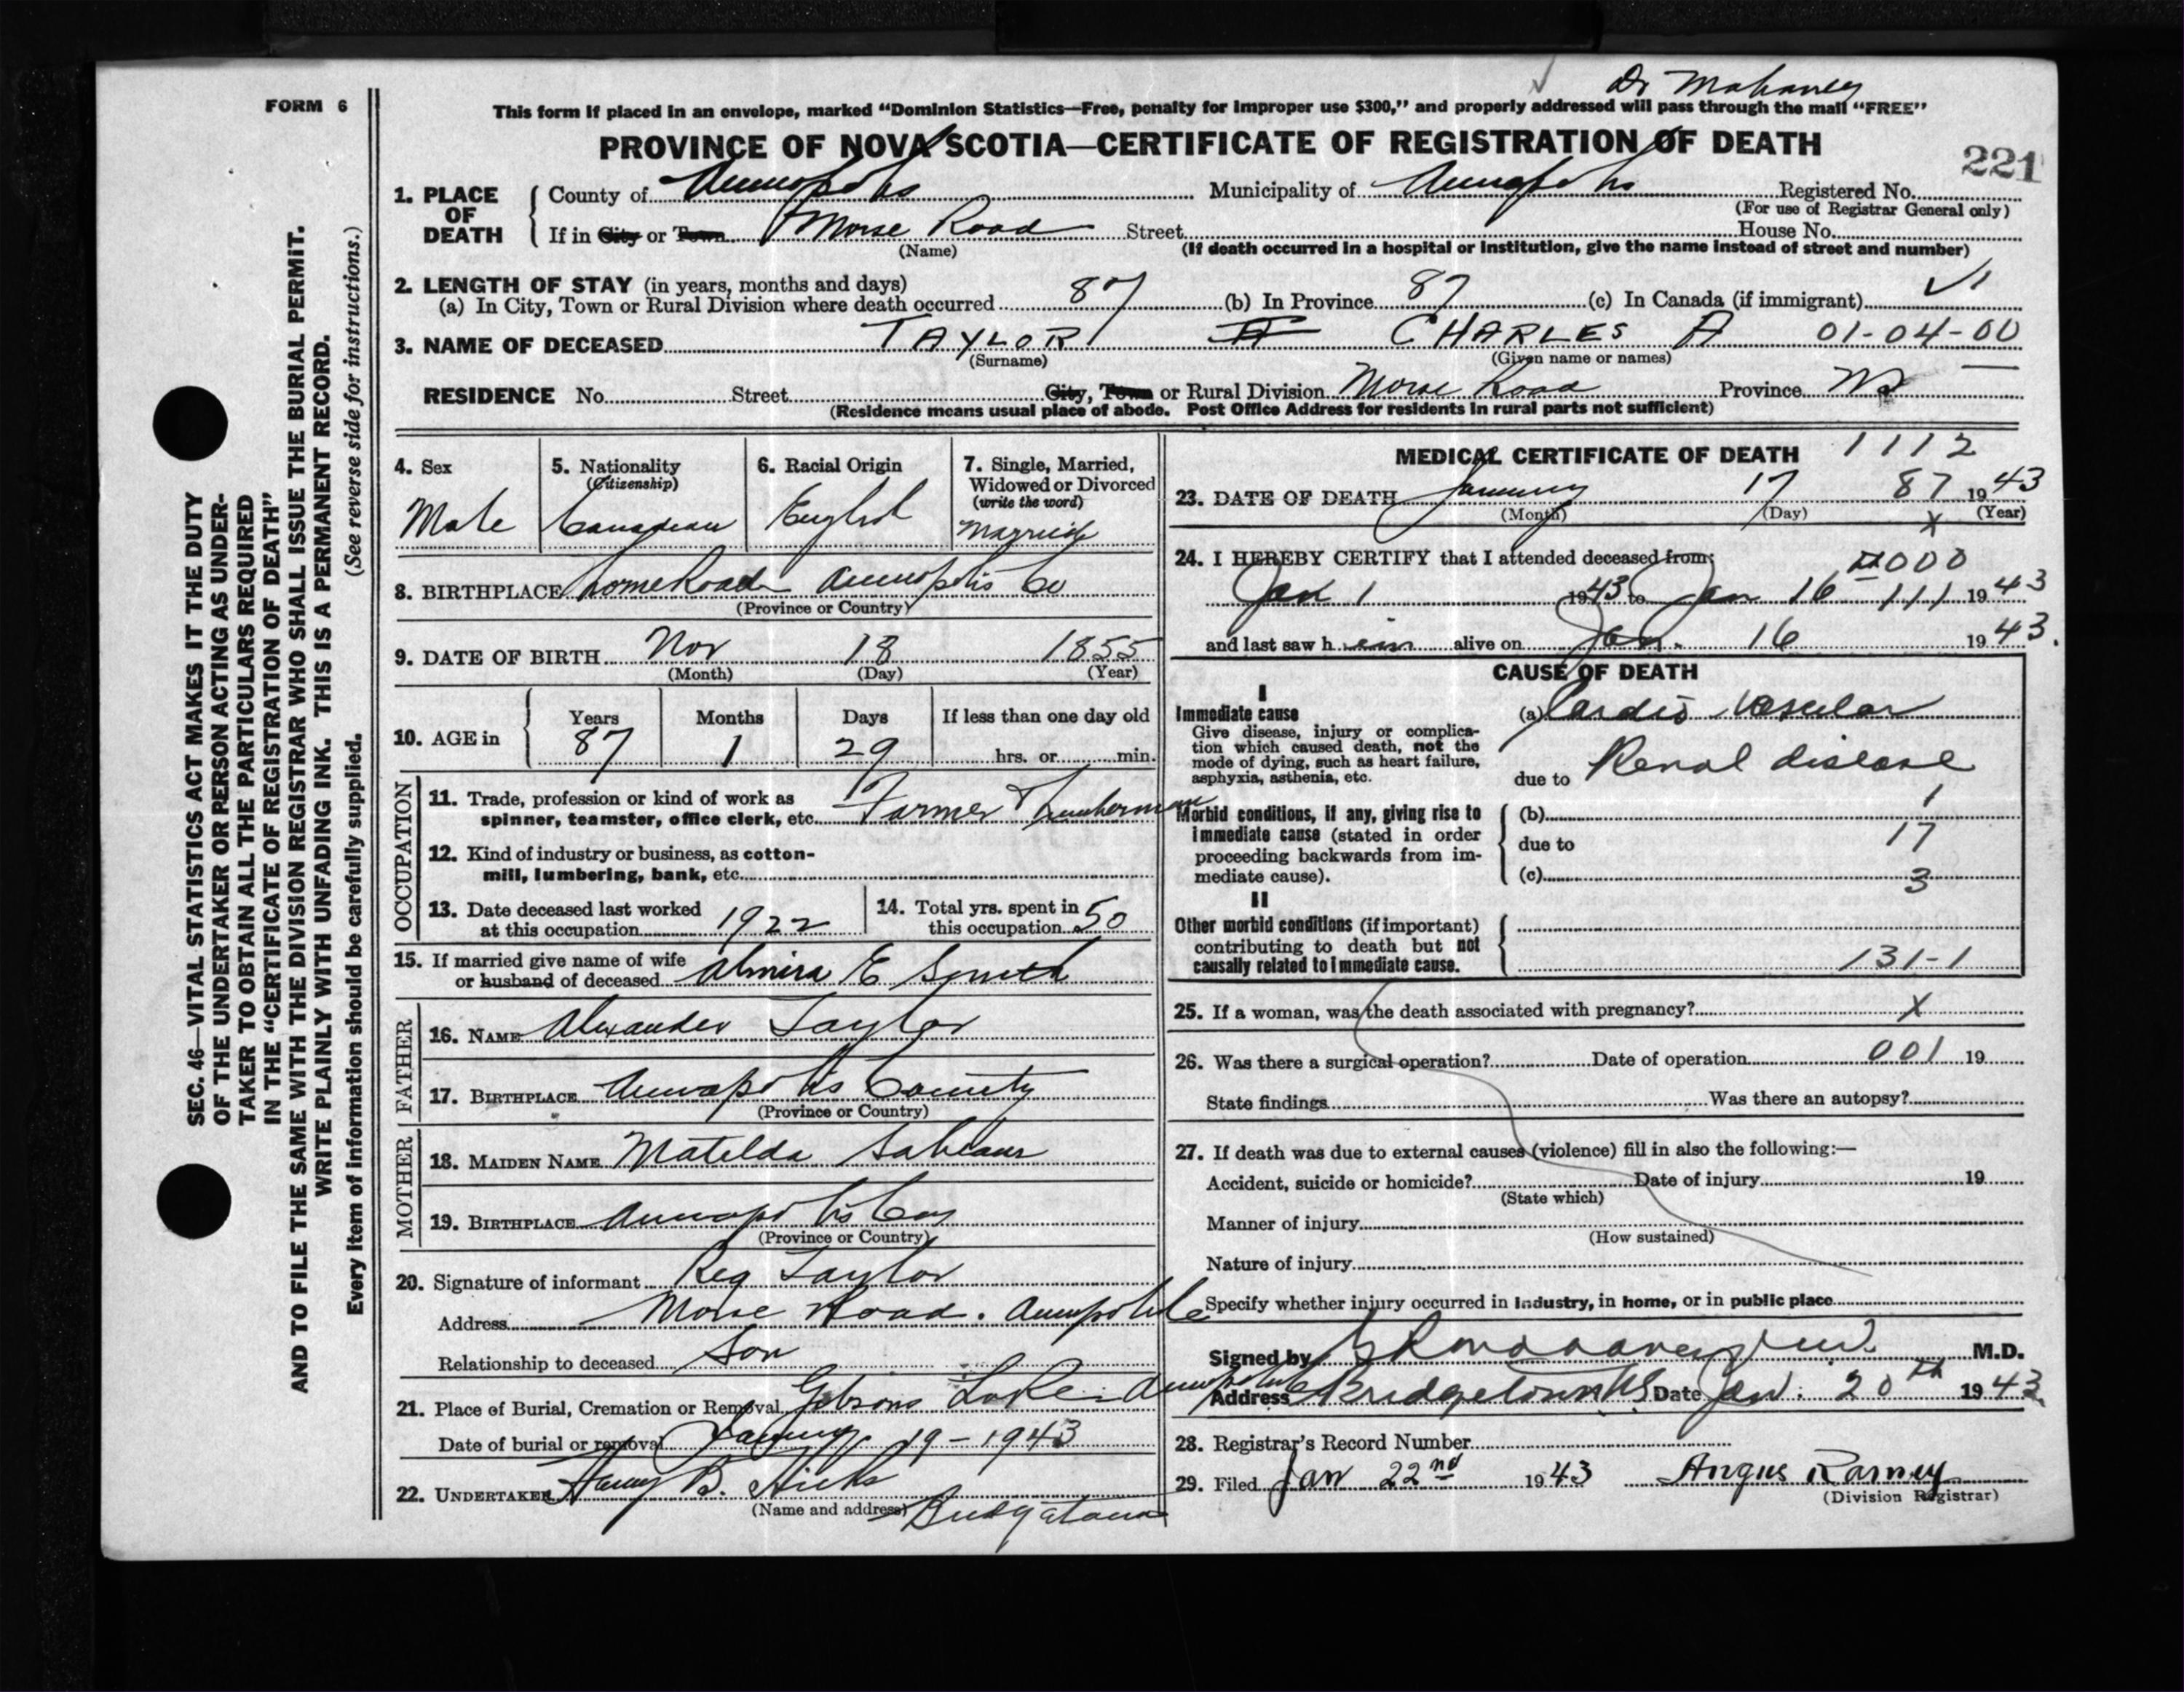 Dr Mahaney
FORM 6
This form if placed in an envelope, marked “Dominion Statistics—Free, penalty for improper use $300,” and properly addressed will pass through the mail “FREE”
PROVINCE OF NOVA SCOTIA—CERTIFICATE OF REGISTRATION OF DEATH
221
1. PLACE OF DEATH County of Annapolis Municipality of Annapolis Registered No.
(For use of Registrar General only)
If in City or Town Morse Road Street House No.
(Name) (If death occurred in a hospital or institution, give the name instead of street and number)
2. LENGTH OF STAY (in years, months and days)
(a) In City, Town or Rural Division where death occurred 87 (b) In Province 87 (c) In Canada (if immigrant)
3. NAME OF DECEASED TAYLOR CHARLES A 01-04-00
(Surname) (Given name or names)
RESIDENCE No. Street City, Town or Rural Division Morse Road Province NS
(Residence means usual place of abode. Post Office Address for residents in rural parts not sufficient)
4. Sex Male
5. Nationality (Citizenship) Canadian
6. Racial Origin English
7. Single, Married, Widowed or Divorced (write the word) Married
8. BIRTHPLACE Annapolis Co
(Province or Country)
9. DATE OF BIRTH Nov 18 1855
(Month) (Day) (Year)
10. AGE in Years 87 Months 1 Days 29 If less than one day old hrs. or min.
OCCUPATION
11. Trade, profession or kind of work as
spinner, teamster, office clerk, etc. Farmer & Lumberman
12. Kind of industry or business, as cotton-
mill, lumbering, bank, etc.
13. Date deceased last worked at this occupation 1922
14. Total yrs. spent in this occupation 50
15. If married give name of wife
or husband of deceased Almira E Smith
FATHER
16. NAME Alexander Taylor
17. BIRTHPLACE Annapolis County
(Province or Country)
MOTHER
18. MAIDEN NAME Matilda Sabeans
19. BIRTHPLACE Annapolis Co
(Province or Country)
20. Signature of informant Reg Taylor
Address Morse Road. Annapolis Co
Relationship to deceased Son
21. Place of Burial, Cremation or Removal Gibsons Lake Annapolis Co
Date of burial or removal January 19-1943
22. UNDERTAKER Harry B. Hicks
(Name and address) Bridgetown
MEDICAL CERTIFICATE OF DEATH 1112
23. DATE OF DEATH January 17 87 1943
(Month) (Day) (Year)
X
24. I HEREBY CERTIFY that I attended deceased from:
000
Jan 1 1943 to Jan 16 111 1943
and last saw h im alive on Jan. 16 1943.
CAUSE OF DEATH
I
Immediate cause
Give disease, injury or complica-
tion which caused death, not the
mode of dying, such as heart failure,
asphyxia, asthenia, etc.
(a) Cardio Vascular
due to Renal disease
Morbid conditions, if any, giving rise to
immediate cause (stated in order
proceeding backwards from im-
mediate cause).
(b) 1
due to 17
(c) 3
II
Other morbid conditions (if important)
contributing to death but not
causally related to immediate cause.
131-1
25. If a woman, was the death associated with pregnancy? X
26. Was there a surgical operation? Date of operation 001 19
State findings Was there an autopsy?
27. If death was due to external causes (violence) fill in also the following:—
Accident, suicide or homicide? Date of injury 19
(State which)
Manner of injury
(How sustained)
Nature of injury
Specify whether injury occurred in industry, in home, or in public place
Signed by M.D.
Address Bridgetown NS Date Jan. 20th 1943
28. Registrar's Record Number
29. Filed Jan 22nd 1943 Angus Ramey
(Division Registrar)
SEC. 46—VITAL STATISTICS ACT MAKES IT THE DUTY
OF THE UNDERTAKER OR PERSON ACTING AS UNDER-
TAKER TO OBTAIN ALL THE PARTICULARS REQUIRED
IN THE “CERTIFICATE OF REGISTRATION OF DEATH”
AND TO FILE THE SAME WITH THE DIVISION REGISTRAR WHO SHALL ISSUE THE BURIAL PERMIT.
WRITE PLAINLY WITH UNFADING INK. THIS IS A PERMANENT RECORD.
Every item of information should be carefully supplied. (See reverse side for instructions.)